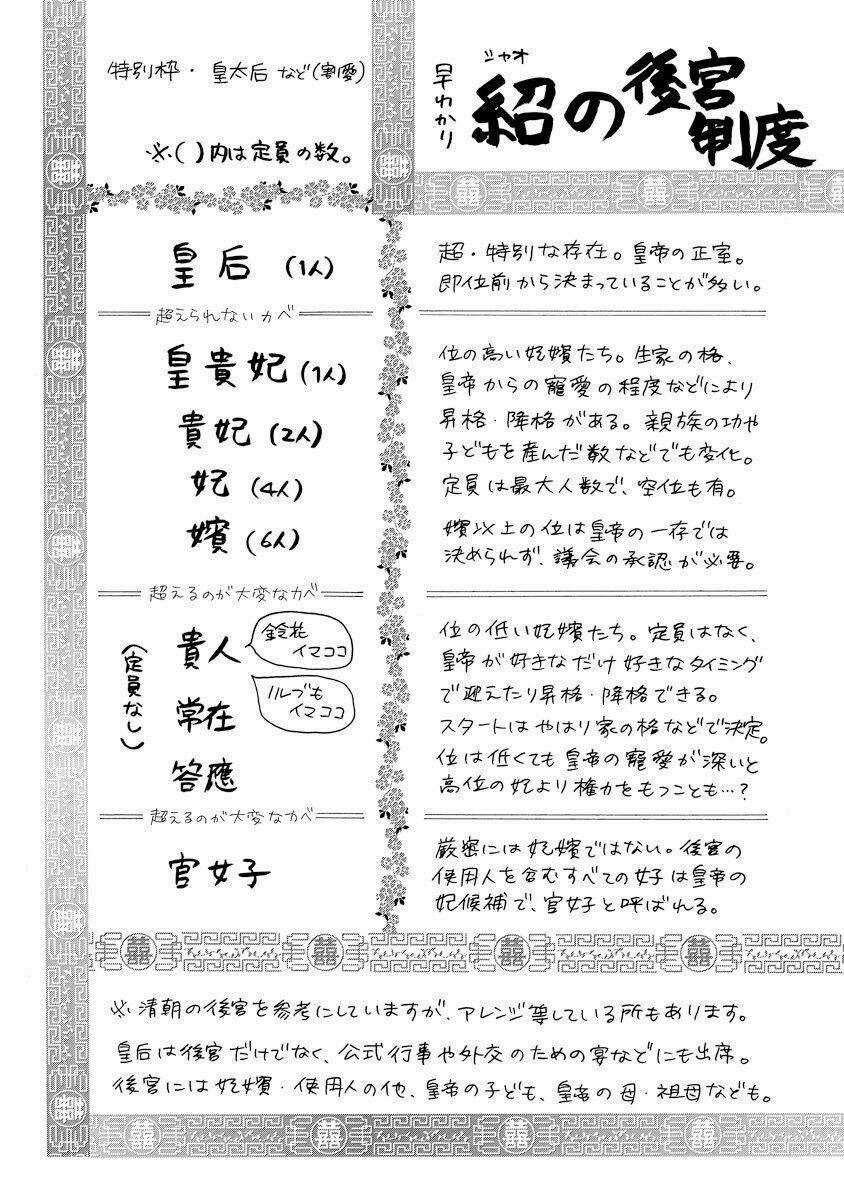 早わかり
シャオ
紹の後宮
制度
特別枠・皇太后など(割愛)
※( )内は定員の数。
皇后(1人)
超・特別な存在。皇帝の正室。
即位前から決まっていることが多い。
超えられないカベ
皇貴妃(1人)
貴妃(2人)
妃(4人)
嬪(6人)
位の高い妃嬪たち。生家の格、
皇帝からの寵愛の程度などにより
昇格・降格がある。親族の功や
子どもを産んだ数などでも変化。
定員は最大人数で、空位も有。
嬪以上の位は皇帝の一存では
決められず、議会の承認が必要。
超えるのが大変なカベ
(定員なし)
貴人
鈴花
イマココ
常在
ルブも
イマココ
答應
位の低い妃嬪たち。定員はなく、
皇帝が好きなだけ好きなタイミング
で迎えたり昇格・降格できる。
スタートはやはり家の格などで決定。
位は低くても皇帝の寵愛が深いと
高位の妃より権力をもつことも…?
超えるのが大変なカベ
官女子
厳密には妃嬪ではない。後宮の
使用人を含むすべての女子は皇帝の
妃候補で、官女子と呼ばれる。
※清朝の後宮を参考にしていますが、アレンジ等している所もあります。
皇后は後宮だけでなく、公式行事や外交のための宴などにも出席。
後宮には妃嬪・使用人の他、皇帝の子ども、皇帝の母・祖母なども。